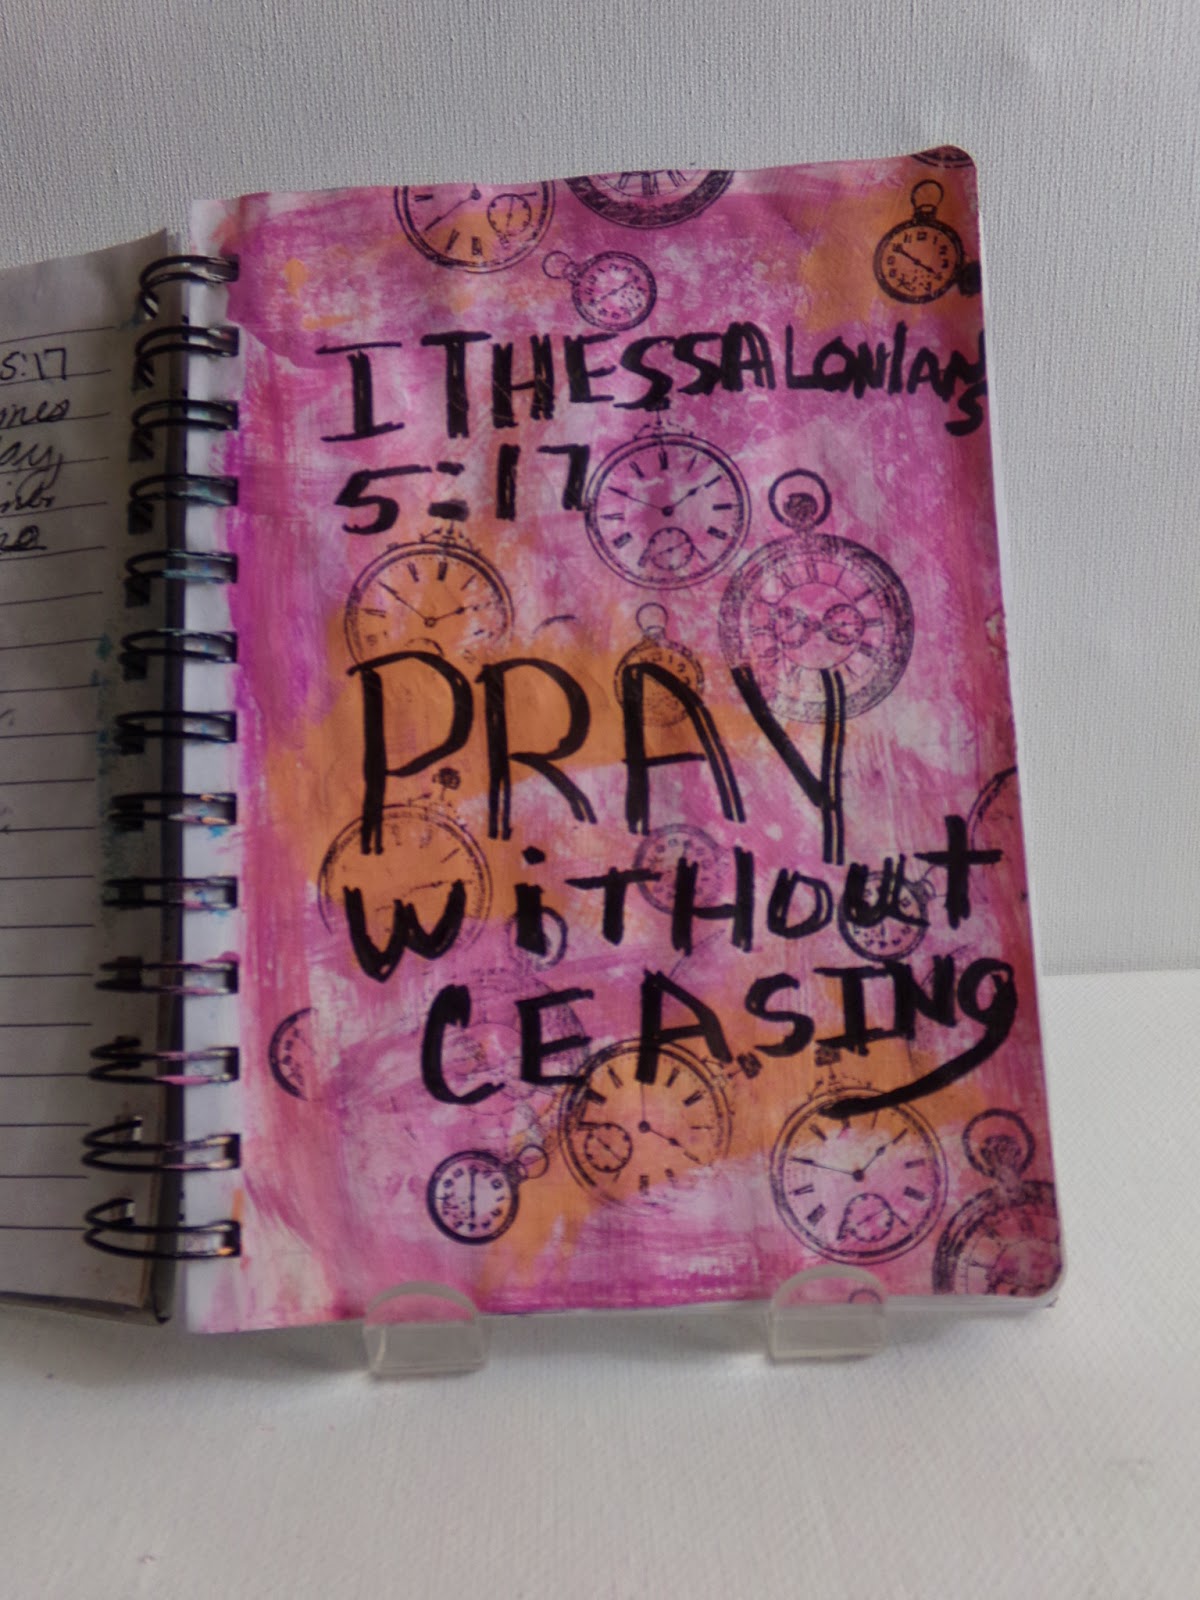 5:17
I THESSALONIANS
5:17
PRAY
WiTHOUT
CEASING